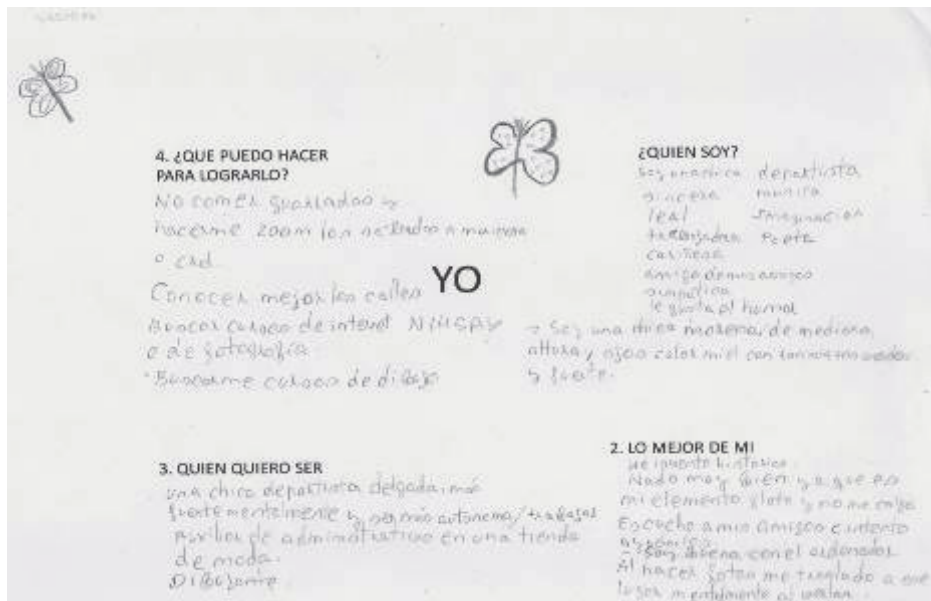 4. ¿QUE PUEDO HACER
PARA LOGRARLO?
No comer guarradas y
hacerme zoom los
o
Conocer mejor las calles
Buscar cursos de internet
o de fotografía
Buscarme cursos de dibujo
YO
¿QUIEN SOY?
Soy una chica deportista
sincera
leal Imaginación
trabajadora
cariñosa
amiga de mis amigos
simpática
le gusta el humor
→ Soy una chica morena, de mediana
altura y ojos color miel con
y fuerte.
3. QUIEN QUIERO SER
una chica deportista delgada, más
fuerte mentalmente y ser más autonoma/trabajar
Auxiliar de administrativo en una tienda
de moda.
Dibujante
2. LO MEJOR DE MI
Me invento historias.
Nado muy bien ya que es
mi elemento floto y no me canso
Escucho a mis amigos e intento
Soy buena con el ordenador
Al hacer fotos me traslado a ese
lugar mentalmente